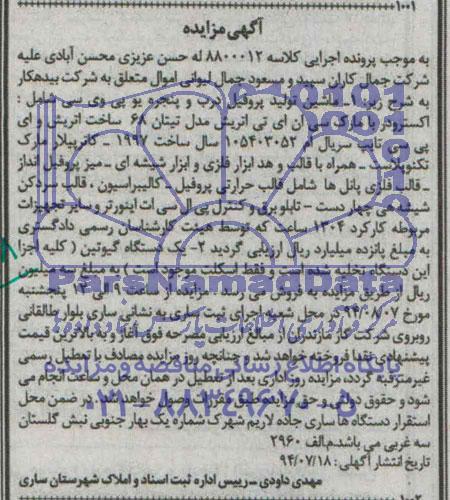 ۱۰۰۱
آگهی مزایده
به موجب پرونده اجرایی کلاسه ۸۸۰۰۰۱۲ له حسن عزیزی محسن آبادی علیه
شرکت جمال کاران سپید و مسعود جمال لیوانی اموال متعلق به شرکت بدهکار
به شرح زیر: ۱- ماشین تولید پروفیل درب و پنجره یو پی وی سی شامل :
اکسترودر با مارک سی ان ای تی اتریش مدل تیتان ۶۸ ساخت اتریش دای
پی سی تایپ سریال ۱۰۵۴۰۳۰۵۳ سال ساخت ۱۹۹۷ - کاترپیلار مارک
همراه با قالب و هد ابزار فلزی و ابزار شیشه ای - میز پروفیل انداز
- قالب فلزی پانل ها شامل قالب حرارتی پروفیل - کالیبراسیون ، قالب سردکن
شیشه دهی چهار دست - تابلو برق و کنترل پی ال سی ات اینورتر و سایر تجهیزات
مربوطه کارکرد ۱۲۰۴ ساعت که توسط هیئت کارشناسان رسمی دادگستری
به مبلغ پانزده میلیارد ریال ارزیابی گردید ۲- یک دستگاه گیوتین ( کلیه اجزا
این دستگاه تخلیه شده است و فقط اسکلت موجود است ) به مبلغ سه میلیون
ریال از طریق مزایده به فروش می رسد. مزایده از ساعت ۹ الی ۱۲ پنجشنبه
مورخ ۹۴/۰۸/۰۷ در محل شعبه اجرای ثبت ساری به نشانی ساری بلوار طالقانی
روبروی شرکت گاز مازندران از مبلغ ارزیابی مصرحه فوق آغاز و به بالاترین قیمت
پیشنهادی نقدا فروخته خواهد شد و چنانچه روز مزایده مصادف با تعطیل رسمی
غیرمترقبه گردد، مزایده روز اداری بعد از تعطیل در همان محل و ساعت انجام می
شود و حقوق دولتی و حق مزایده طبق مقررات وصول خواهد شد. در ضمن محل
استقرار دستگاه ها ساری جاده لاریم شهرک شماره یک بهار جنوبی نبش گلستان
سه غربی می باشد.م.الف ۲۹۶۰
تاریخ انتشار آگهی: ۹۴/۰۷/۱۸
مهدی داودی - رییس اداره ثبت اسناد و املاک شهرستان ساری
ParsNamadData
پایگاه اطلاع رسانی مناقصه و مزایده
۰۲۱-۸۸۳۴۹۶۷۰-۵